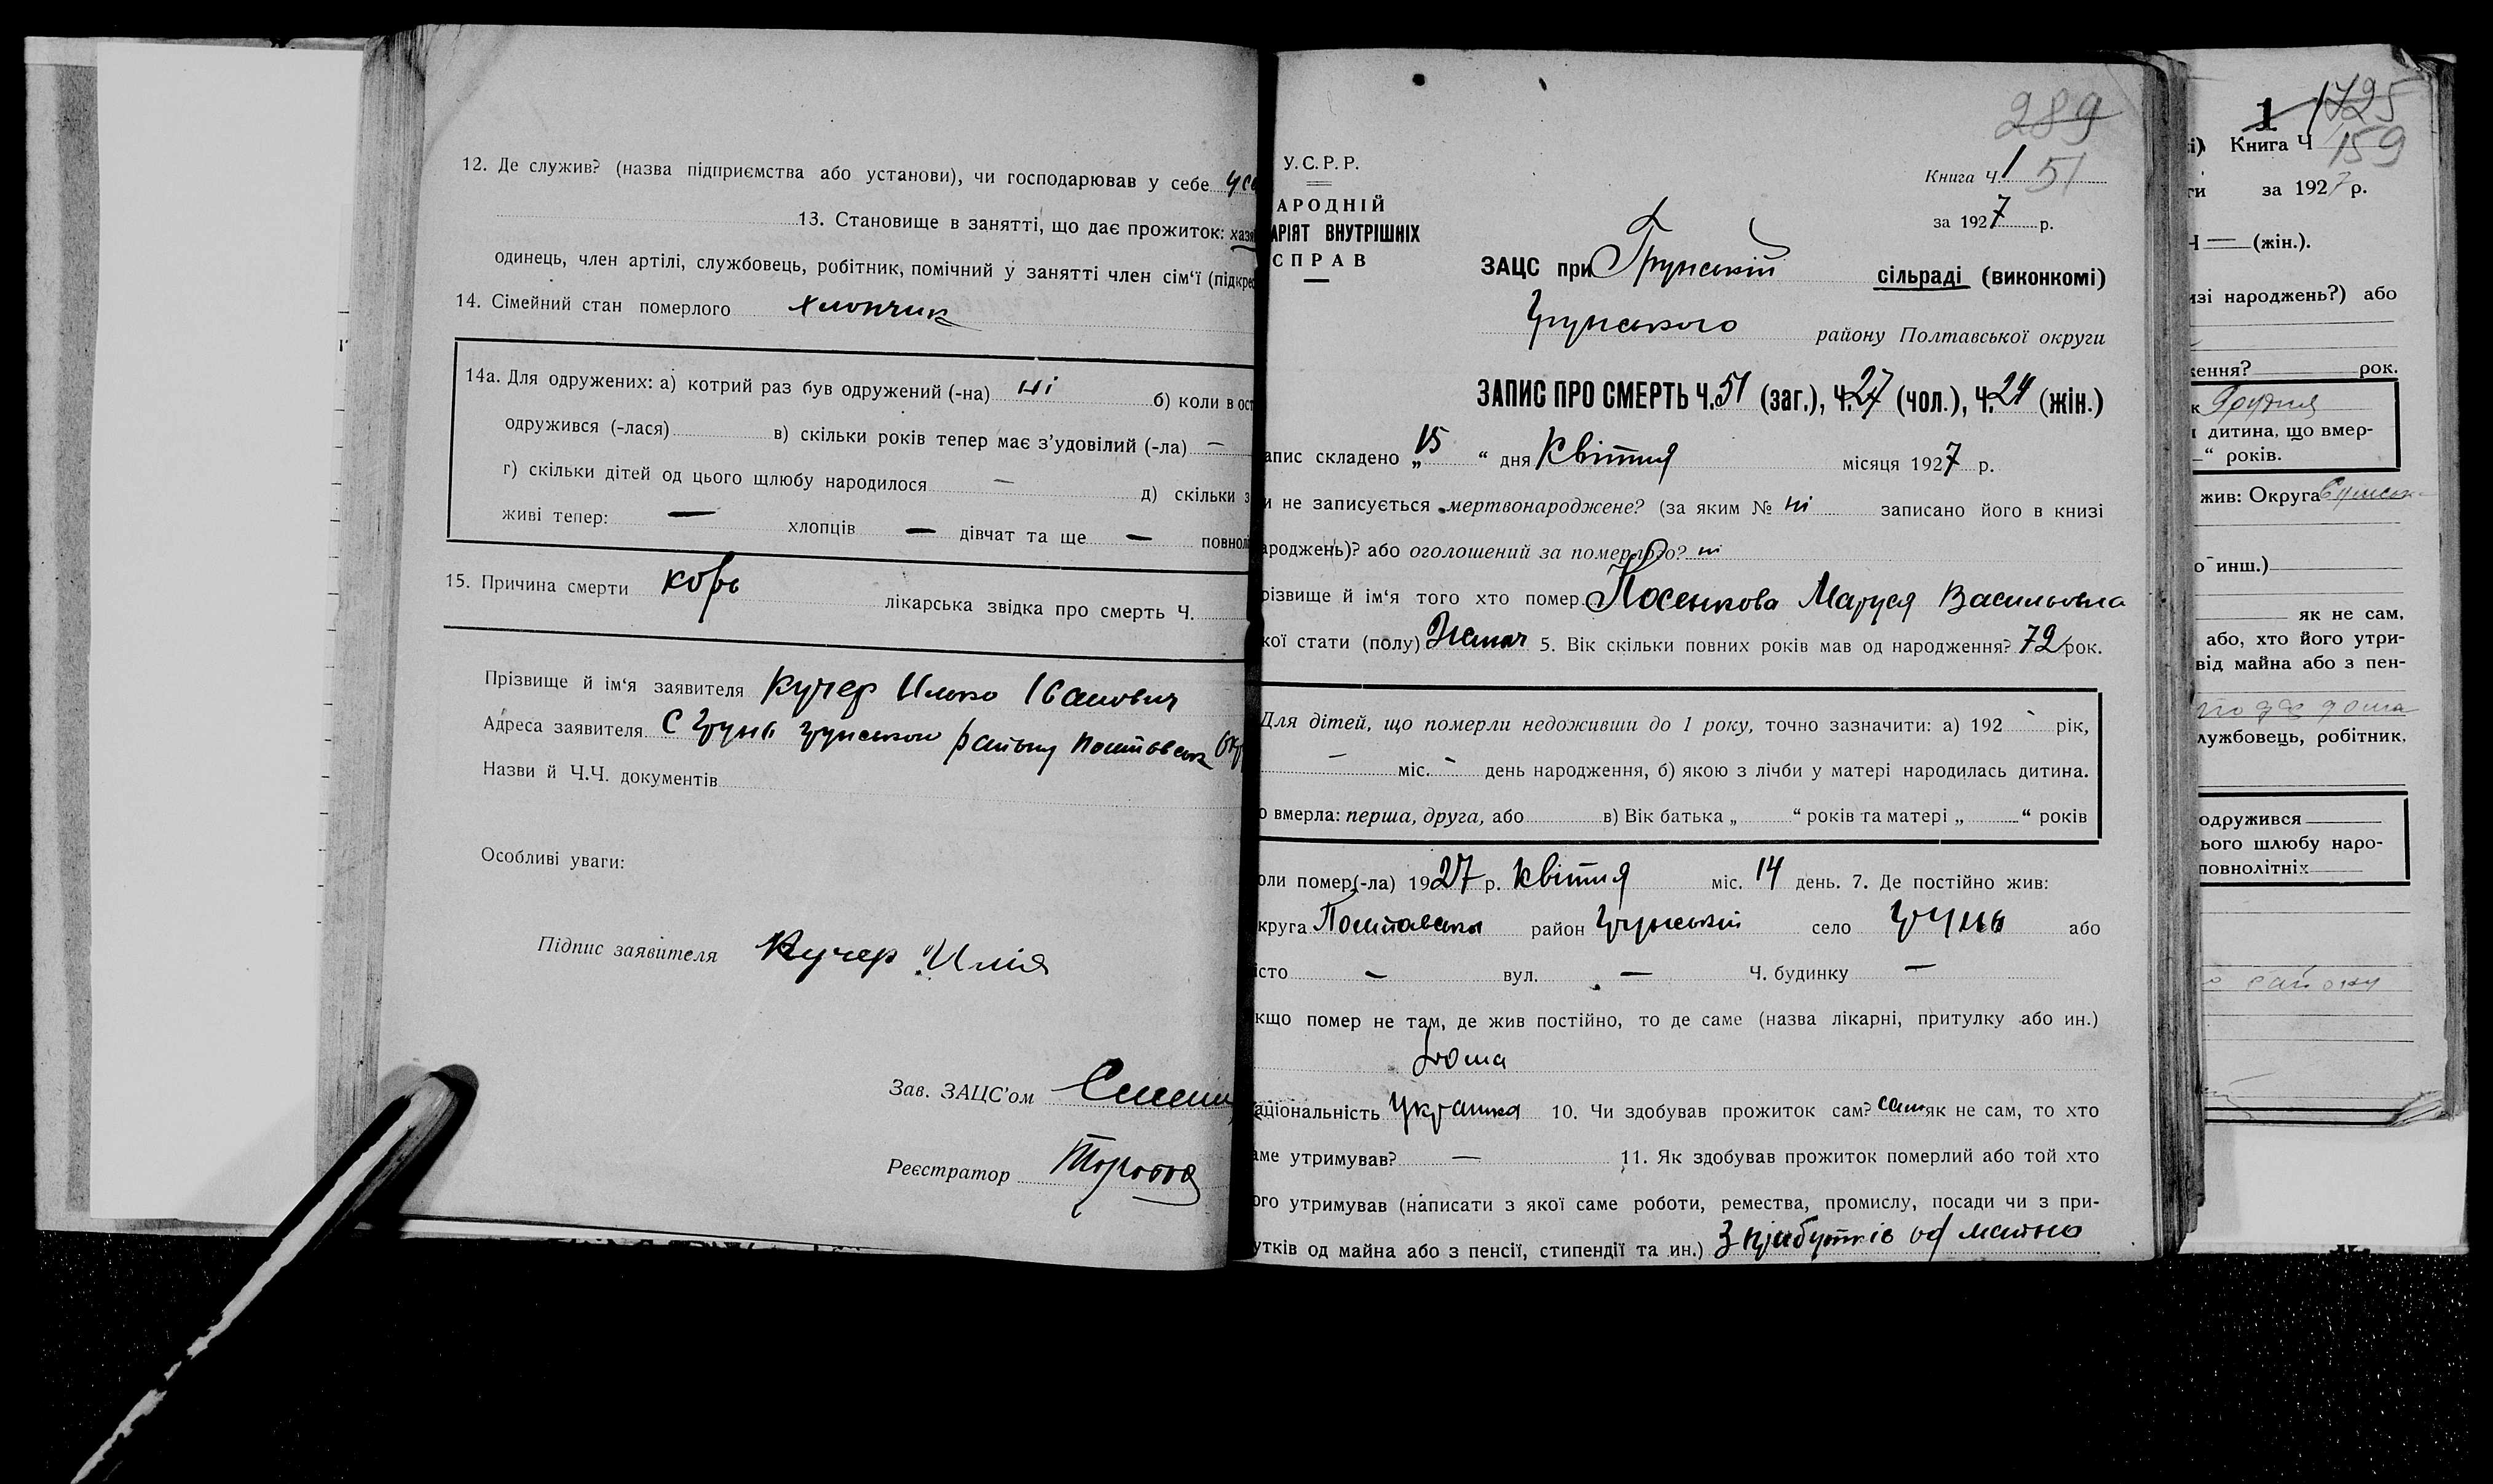 12. Де служив? (назва підприємства або установи), чи господарював у себе у се
13. Становище в занятті, що дає прожиток: хазя
одинець, член артілі, службовець, робітник, помічний у занятті член сім'ї (підкре
14. Сімейний стан померлого хлопчик
14а. Для одружених: а) котрий раз був одружений (-на) ні б) коли в ост
одружився (-лася) в) скільки років тепер має з'удовілий (-ла) —
г) скільки дітей од цього щлюбу народилося — д) скільки з
живі тепер: — хлопців — дівчат та ще — повнолі
15. Причина смерти корь лікарська звідка про смерть Ч.
Прізвище й ім'я заявителя Кучер Илько Іванович
Адреса заявителя С Грунь Грунського району Полтавськ Окр
Назви й Ч.Ч. документів
Особливі уваги:
Підпис заявителя Кучер Илія
Зав. ЗАЦС'ом
Реєстратор
289
У.С.Р.Р.
Книга Ч. 1 51
АРОДНІЙ
за 1927 р.
АРІЯТ ВНУТРІШНІХ
СПРАВ
ЗАЦС при Грунській сільраді (виконкомі)
Грунського району Полтавської округи
ЗАПИС ПРО СМЕРТЬ Ч. 51 (заг.), Ч. 27 (чол.), Ч. 24 (жін.)
апис складено „15 “ дня Квітня місяця 1927 р.
и не записується мертвонароджене? (за яким № ні записано його в книзі
ароджень)? або оголошений за померлого? ні
різвище й ім'я того хто помер Носенкова Маруся Васильовна
кої стати (полу) Жіноч 5. Вік скільки повних років мав од народження? 72 рок.
Для дітей, що померли недоживши до 1 року, точно зазначити: а) 192 - рік,
— міс. - день народження, б) якою з лічби у матері народилась дитина.
о вмерла: перша, друга, або в) Вік батька „ “ років та матері „ “ років
оли помер(-ла) 1927 р. Квітня міс. 14 день. 7. Де постійно жив:
круга Полтавська район Грунський село Грунь або
істо — вул. — Ч. будинку —
кщо помер не там, де жив постійно, то де саме (назва лікарні, притулку або ин.)
Дома
аціональність Українка 10. Чи здобував прожиток сам? сам як не сам, то хто
аме утримував? — 11. Як здобував прожиток померлий або той хто
ого утримував (написати з якої саме роботи, ремества, промислу, посади чи з при-
утків од майна або з пенсії, стипендії та ин.) З прибутків од майна
1 1725
і) Книга Ч 159
ти за 1927 р.
Ч — (жін.).
изі народжень?) або
ження? рок.
к Грудня
и дитина, що вмер-
—“ років.
жив: Округа Сумськ
о инш.)
як не сам,
або, хто його утри-
від майна або з пен-
дома
лужбовець, робітник,
одружився
ього шлюбу наро-
повнолітніх
району